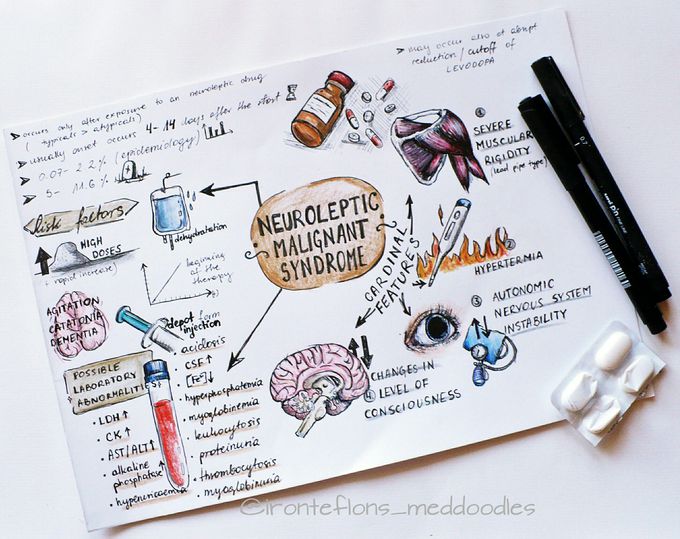 > occurs only after exposure to an neuroleptic drug
( typicals > atypicals)
> usually onset occurs 4-14 days after the start
> 0.07-2.2% (epidemiology)
> 5- 11.6%
> may occur also at abrupt
reduction/cutoff of
LEVODOPA
Risk factors
HIGH
DOSES
(+ rapid increase)
dehydratation
beginning
at the
therapy
AGITATION
CATATONIA
DEMENTIA
depot form
injection
NEUROLEPTIC
MALIGNANT
SYNDROME
CARDINAL
FEATURES
①
SEVERE
MUSCULAR
RIGIDITY
(lead pipe type)
②
HYPERTERMIA
③ AUTONOMIC
NERVOUS SYSTEM
INSTABILITY
④ CHANGES IN
LEVEL OF
CONSCIOUSNESS
POSSIBLE
LABORATORY
ABNORMALITI
• LDH↑
• CK↑
• AST/ALT↑
• alkaline
phosphatase↑
• hyperuricaemia
• acidosis
• CSF↑
• [Fe]↓
• hyperphosphatemia
• myoglobinemia
• leukocytosis
• proteinuria
• thrombocytosis
• myoglobinuria
uni pin
0.7
@ironteflons_meddoodles